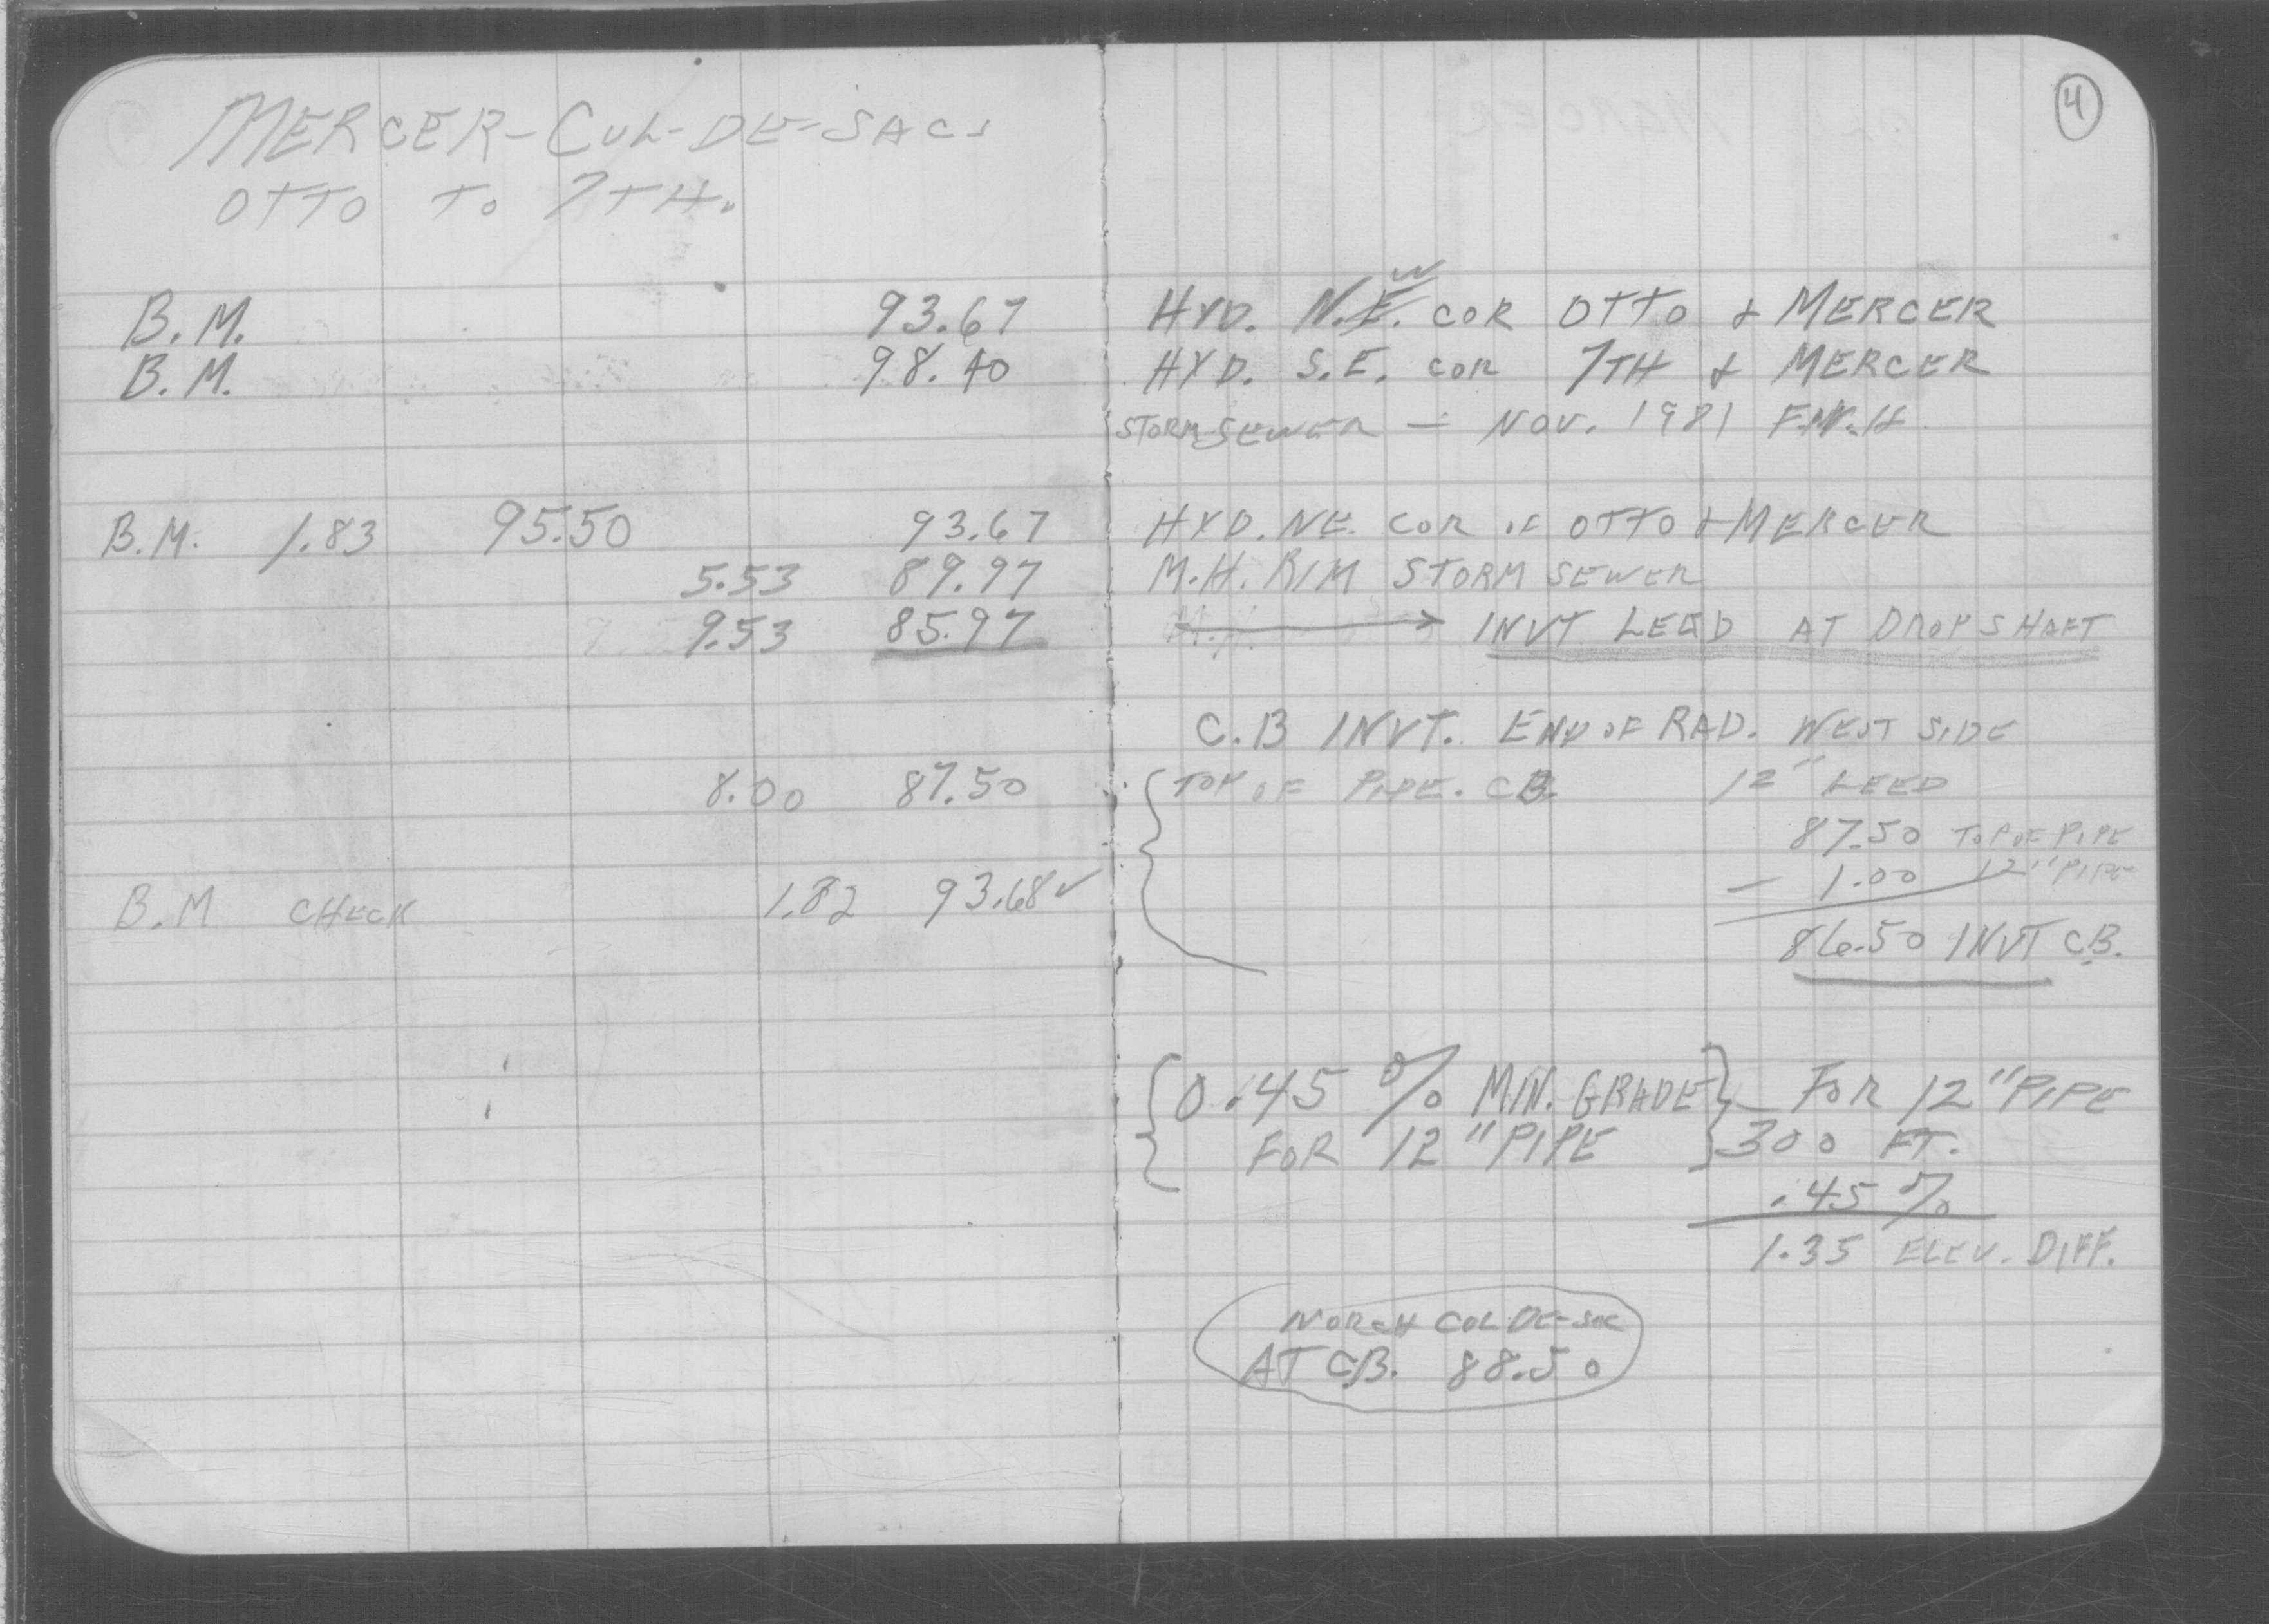 MERCER-CUL-DE-SACS
OTTO TO 7TH.
B.M. 93.67
B.M. 98.40
B.M. 1.83 95.50 93.67
5.53 89.97
9.53 85.97
8.00 87.50
B.M CHECK 1.82 93.68 ✓
4
W
HYD. N.E. COR OTTO & MERCER
HYD. S.E. COR 7TH & MERCER
STORM SEWER - NOV. 1981
HYD. NE. COR OF OTTO & MERCER
M.H. RIM STORM SEWER
→ INVT LEED AT DROP SHAFT
C.B INVT. END OF RAD. WEST SIDE
TOP OF PIPE. CB. 12" LEED
87.50 TOP OF PIPE
- 1.00 12" PIPE
86.50 INVT CB.
{0.45 % MIN. GRADE} - FOR 12" PIPE
FOR 12" PIPE 300 FT.
.45 %
1.35 ELEV. DIFF.
NORTH COL DE-SAC
AT CB. 88.50